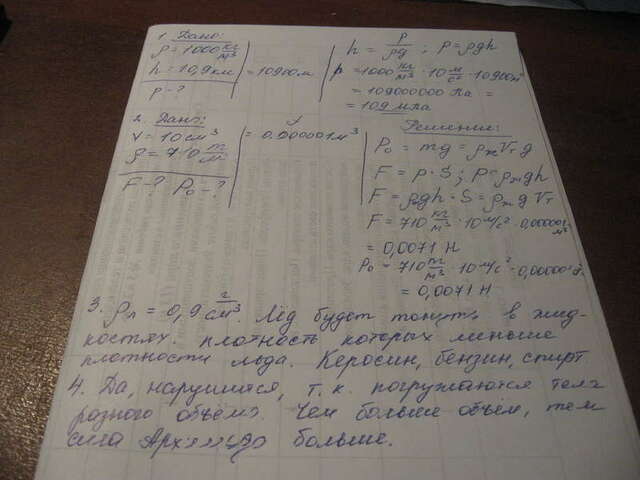 1. Дано:
ρ = 1000 кг/м³
h = 10,9 км = 10900 м
p - ?
h = p/ρg ; p = ρgh
p = 1000 кг/м³ · 10 м/с² · 10900 м
= 109000000 Па =
= 109 мПа
2. Дано:
V = 10 см³ = 0,000001 м³
ρ = 710
F - ? P₀ - ?
Решение:
P₀ = mg = ρжVтg
F = p · S; P = ρжgh
F = ρgh · S = ρжgVт
F = 710 · 10 м/с² · 0,00000 м³
= 0,0071 Н
P₀ = 710 · 10 м/с² · 0,00000
= 0,0071 Н
3. ρл = 0,9 г/см³. Лёд будет тонуть в жид-
костях. плотность которых меньше
плотности льда. Керосин, бензин, спирт
4. Да, нарушится, т. к. погружаются тела
разного объёма. Чем больше объём, тем
сила больше.